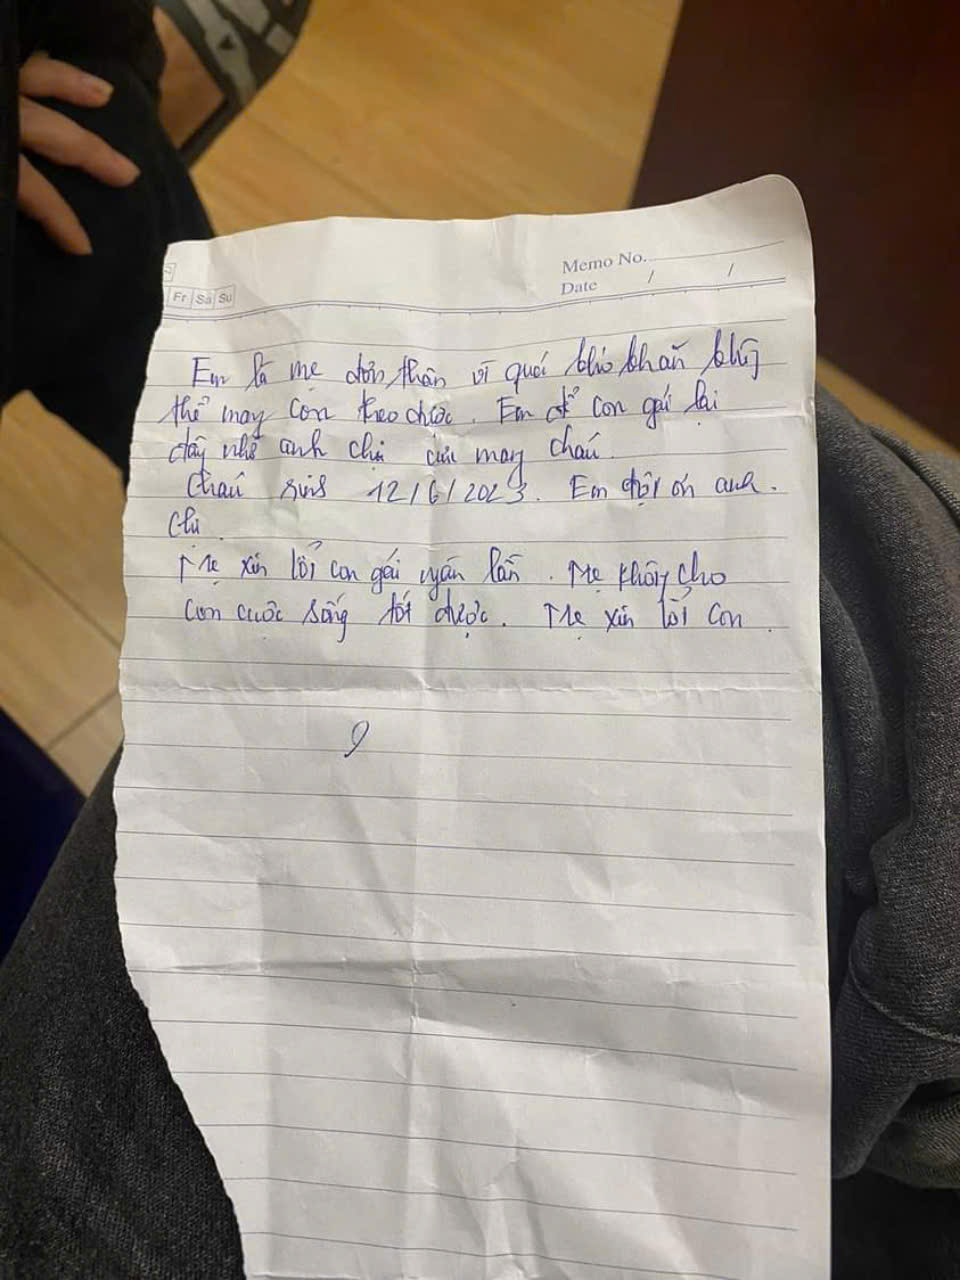 Memo No.
Date / /
Fr Sa Su
Em là mẹ đơn thân vì quá khó khăn không
thể may con theo được. Em để con gái lại
đây nhờ anh chị cưu mang cháu.
Cháu sinh 12/6/2023. Em đội ơn anh.
chị.
Mẹ xin lỗi con gái ngàn lần. Mẹ không cho
con cuộc sống tốt được. Mẹ xin lỗi con.